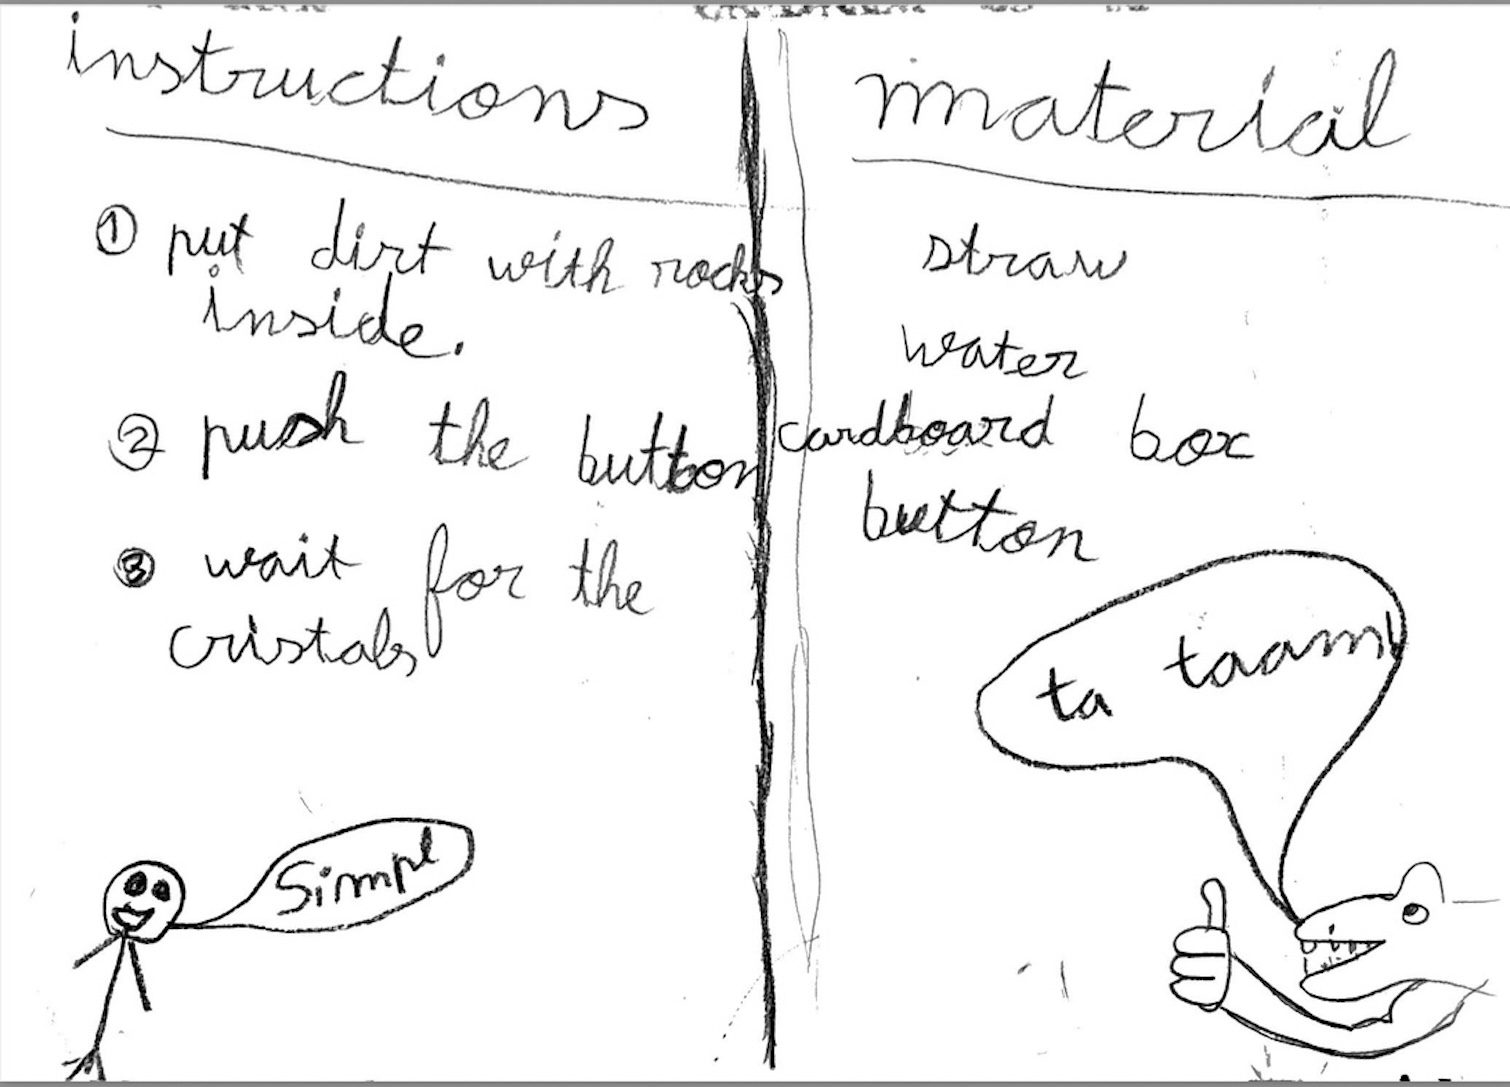 instructions
① put dirt with rocks
inside.
② push the button
③ wait for the
cristals
Simpl
material
straw
water
cardboard box
button
ta taam!